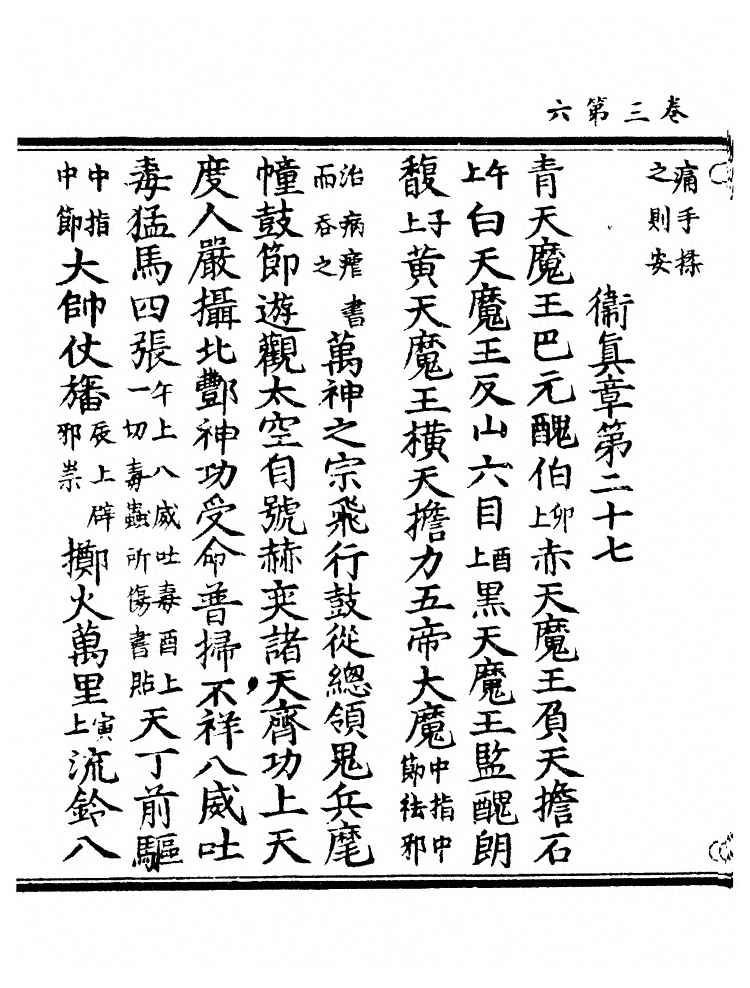 卷三第六
痛手揉之則安
衞眞章第二十七
青天魔王巴元醜伯卯上赤天魔王負天擔石
午上白天魔王反山六目酉上黑天魔王監醜朗
馥子上黃天魔王橫天擔力五帝大魔中指中節祛邪
治病瘧書而吞之萬神之宗飛行鼓從總領鬼兵麾
幢鼓節遊觀太空自號赫奕諸天齊功上天
度人嚴攝北酆神功受命普掃不祥八威吐
毒猛馬四張午上八威吐毒酉上一切毒蟲所傷書貼天丁前驅
中指中節大帥仗旛辰上辟邪祟擲火萬里寅上流鈴八